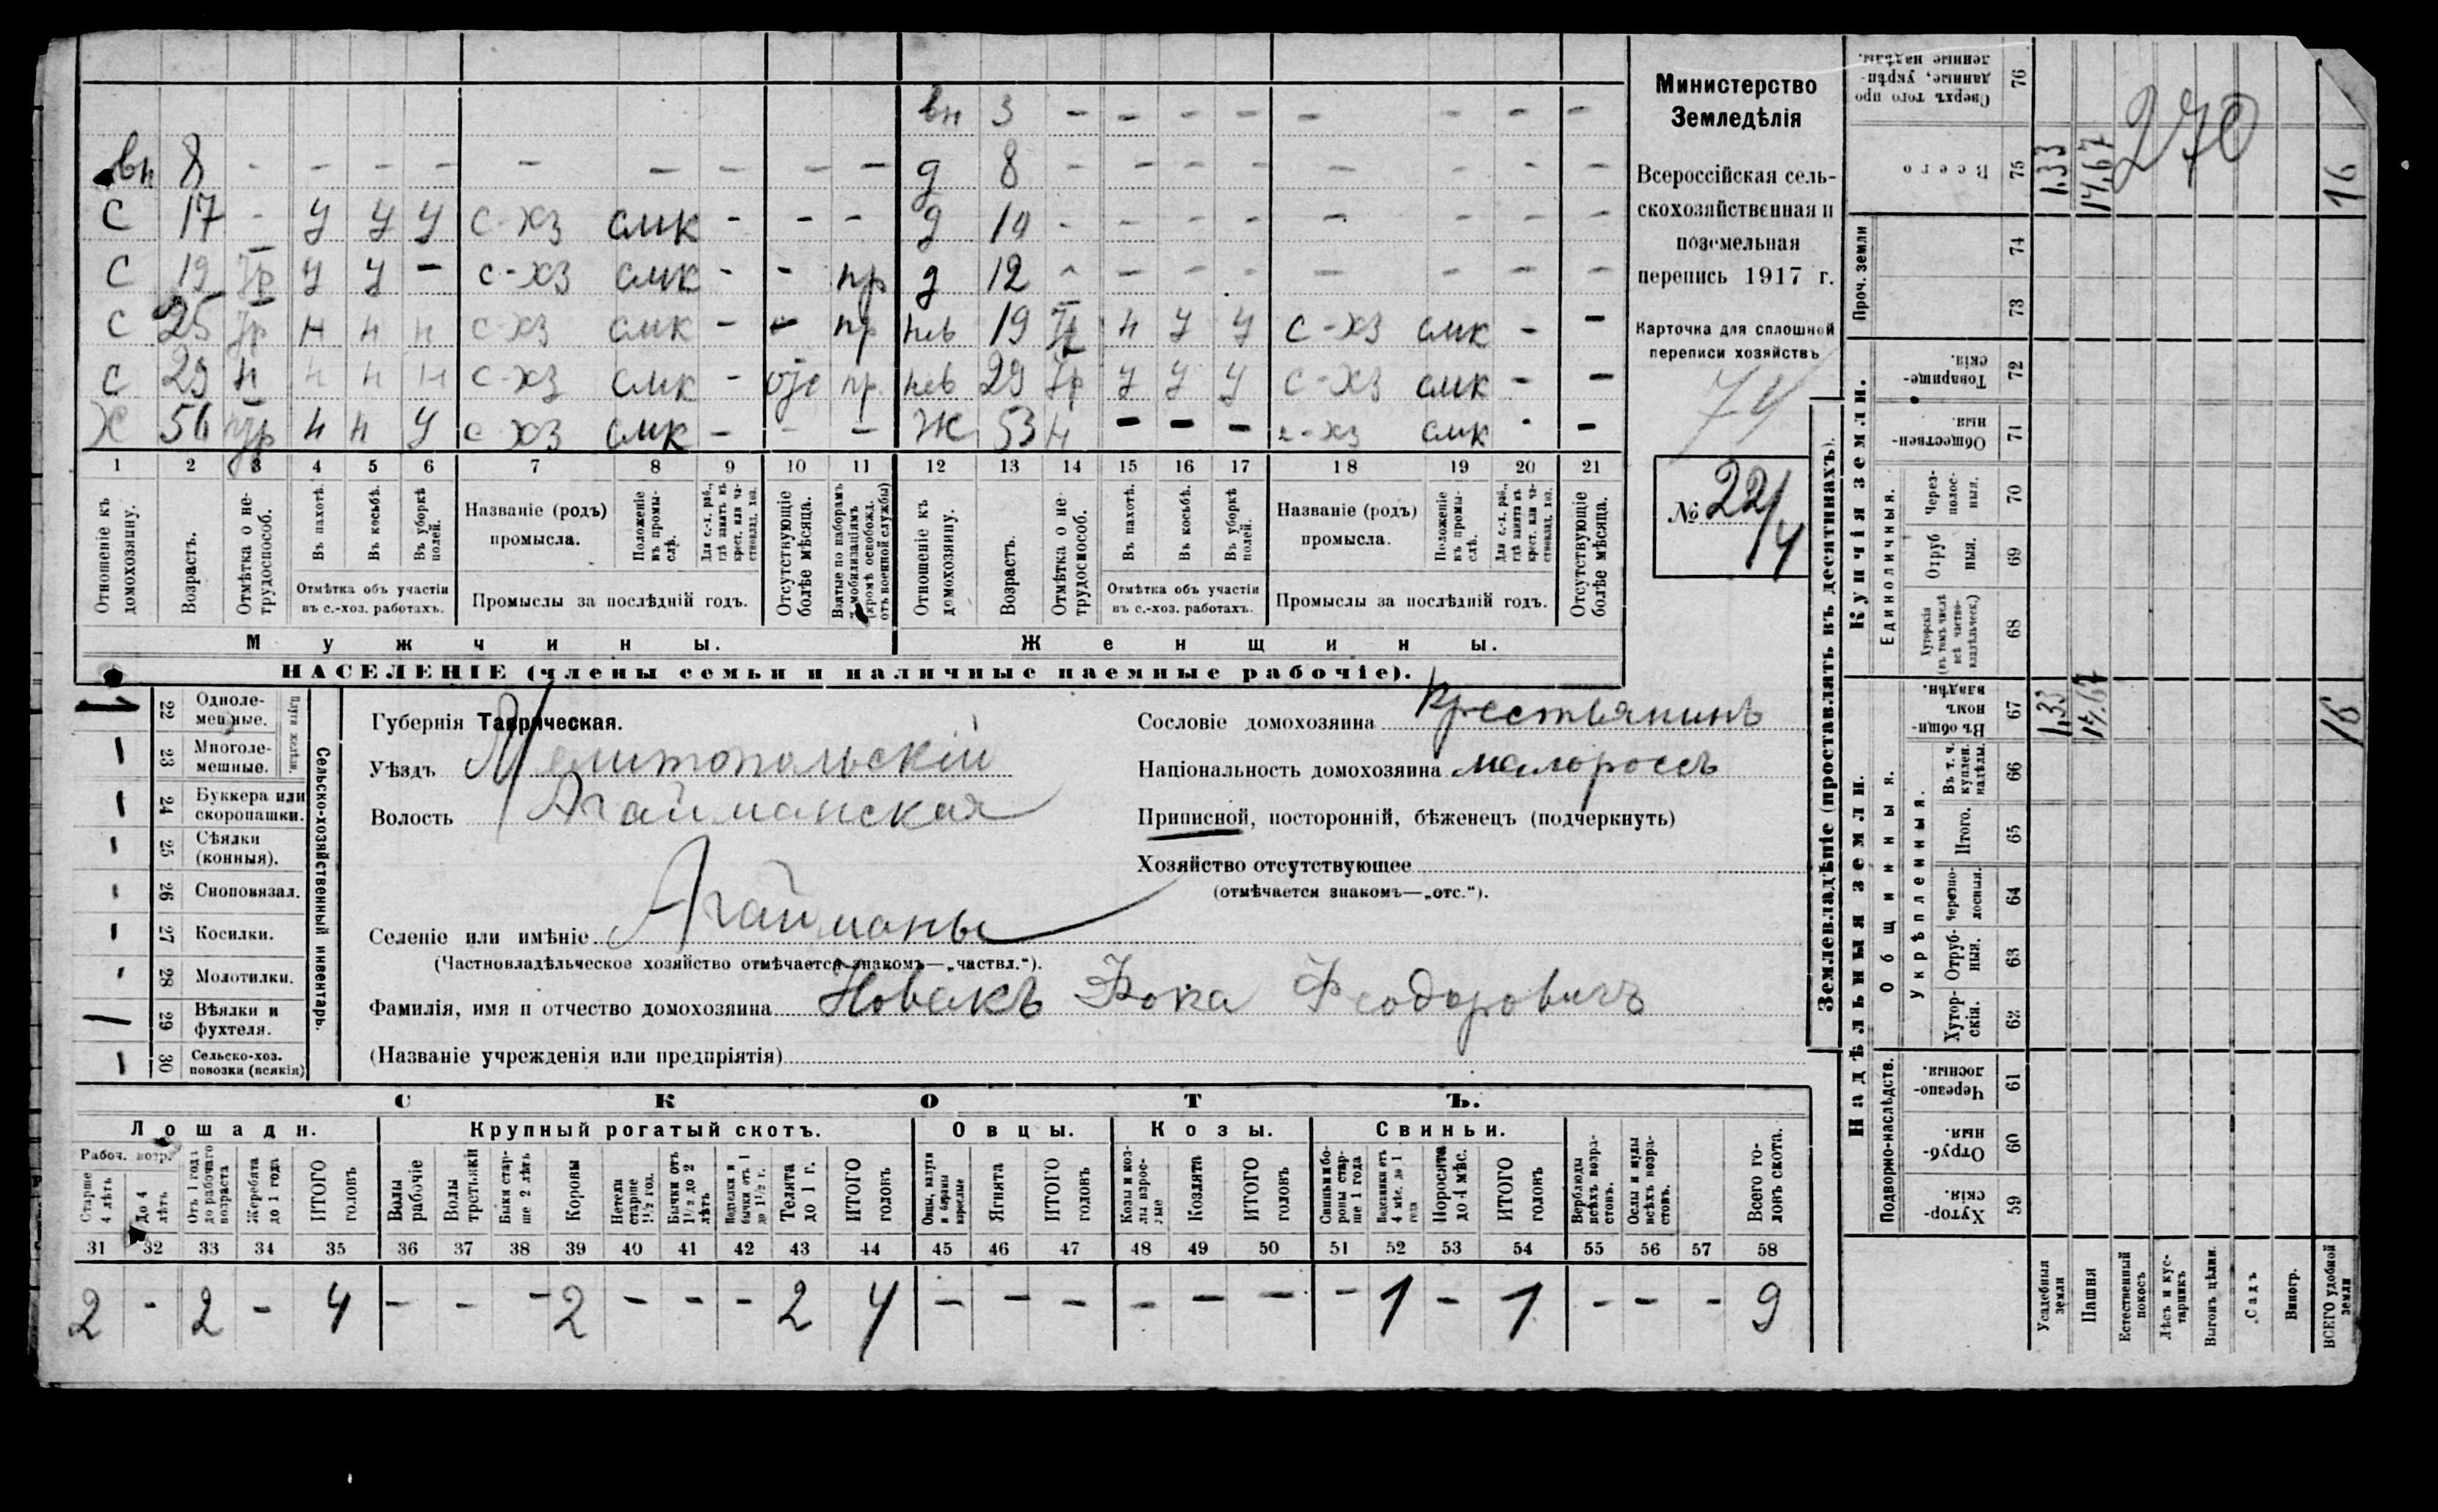 вн 3 - - - - - - - - -
вн 8 - - - - - - - - - д 8 - - - - - - - - -
с 17 - у у у с-хз смк - - - д 10 - - - - - - - - -
с 19 гр у у - с-хз смк - - пр д 12 - - - - - - - - -
с 25 гр н н н с-хз смк - - пр нев 19 гр н у у с-хз смк - -
с 29 н н н н с-хз смк - отс пр нев 29 гр у у у с-хз смк - -
Х 56 гр н н у с-хз смк - - - Ж 53 н - - - с-хз смк - -
1 2 3 4 5 6 7 8 9 10 11 12 13 14 15 16 17 18 19 20 21
Отношеніе къ домохозяину.
Возрастъ.
Отмѣтка о нетрудоспособ.
Въ пахотѣ.
Въ косьбѣ.
Въ уборкѣ полей.
Отмѣтка объ участіи
въ с.-хоз. работахъ.
Названіе (родъ)
промысла.
Положеніе въ промыслѣ.
Для с.-х. раб., гдѣ занятъ въ крест. или частновлад. хоз.
Промыслы за послѣдній годъ.
Отсутствующіе болѣе мѣсяца.
Взятые по наборамъ и мобилизаціямъ (кромѣ освобожд. отъ военной службы)
Отношеніе къ домохозяину.
Возрастъ.
Отмѣтка о нетрудоспособ.
Въ пахотѣ.
Въ косьбѣ.
Въ уборкѣ полей.
Отмѣтка объ участіи
въ с.-хоз. работахъ.
Названіе (родъ)
промысла.
Положеніе въ промыслѣ.
Для с.-х. раб., гдѣ занята въ крест. или частновлад. хоз.
Промыслы за послѣдній годъ.
Отсутствующіе болѣе мѣсяца.
Мужчины.
Женщины.
НАСЕЛЕНІЕ (члены семьи и наличные наемные рабочіе).
Министерство
Земледѣлія
Всероссійская сель-
скохозяйственная и
поземельная
перепись 1917 г.
Карточка для сплошной
переписи хозяйствъ
74
№ 22/4
22 Одноле-
мешные.
23 Многоле-
мешные.
Плуги желѣзн.
24 Буккера или
скоропашки.
25 Сѣялки
(конныя).
26 Сноповязал.
27 Косилки.
28 Молотилки.
29 Вѣялки и
фухтеля.
30 Сельско-хоз.
повозки (всякія)
Сельско-хозяйственный инвентарь.
Губернія Таврическая.
Уѣздъ Мелитопольскій
Волость Агайманская
Селеніе или имѣніе Агайманы
(Частновладѣльческое хозяйство отмѣчается знакомъ—„частвл.“).
Фамилія, имя и отчество домохозяина Новакъ Фока Феодоровичъ
(Названіе учрежденія или предпріятія)
Сословіе домохозяина Крестьянинъ
Національность домохозяина малороссъ
Приписной, посторонній, бѣженецъ (подчеркнуть)
Хозяйство отсутствующее
(отмѣчается знакомъ—„отс.“).
СКОТЪ.
Лошади. Крупный рогатый скотъ. Овцы. Козы. Свиньи.
Рабоч. возр.
Старше 4 лѣтъ
До 4 лѣтъ
Отъ 1 года до рабочаго возраста
Жеребята до 1 года
ИТОГО головъ
Волы рабочіе
Волы третьяки
Быки старше 2 лѣтъ
Коровы
Нетели старше 1½ год.
Бычки отъ 1½ до 2 лѣтъ
Подтелки и бычки отъ 1 до 1½ г.
Телята до 1 г.
ИТОГО головъ
Овцы, валухи и бараны взрослые
Ягнята
ИТОГО головъ
Козы и козлы взрослые
Козлята
ИТОГО головъ
Свиньи и боровы старше 1 года
Подсвинки отъ 4 мѣс. до 1 года
Поросята до 4 мѣс.
ИТОГО головъ
Верблюды всѣхъ возрастовъ.
Ослы и мулы всѣхъ возрастовъ.
Всего головъ скота.
31 32 33 34 35 36 37 38 39 40 41 42 43 44 45 46 47 48 49 50 51 52 53 54 55 56 57 58
2 - 2 - 4 - - - 2 - - - 2 4 - - - - - - - 1 - 1 - - - 9
Землевладѣніе (проставлять въ десятинахъ).
Купчія земли.
Надѣльныя земли.
Проч. земли
Единоличныя.
Общинныя.
Укрѣпленныя.
Подворно-наслѣдств.
Сверхъ того проданные, укрѣпленные надѣлы. 76
Всего 75 1,33 14,67 16
270
74
73
Товарищескія. 72
Общественныя. 71
Черезполосныя. 70
Отрубныя. 69
Хуторскія (въ томъ числѣ всѣ частновладѣльческ.) 68
Въ общинномъ владѣн. 67 1,33 14,67 16
Въ т. ч. куплен. надѣлы. 66
Итого. 65
Черезполосныя. 64
Отрубныя. 63
Хуторскія. 62
Черезполосныя. 61
Отрубныя. 60
Хуторскія. 59
Усадебныя земли
Пашня
Естественный покосъ
Лѣсъ и кустарникъ
Выгонъ цѣлин.
Садъ
Виногр.
ВСЕГО удобной земли